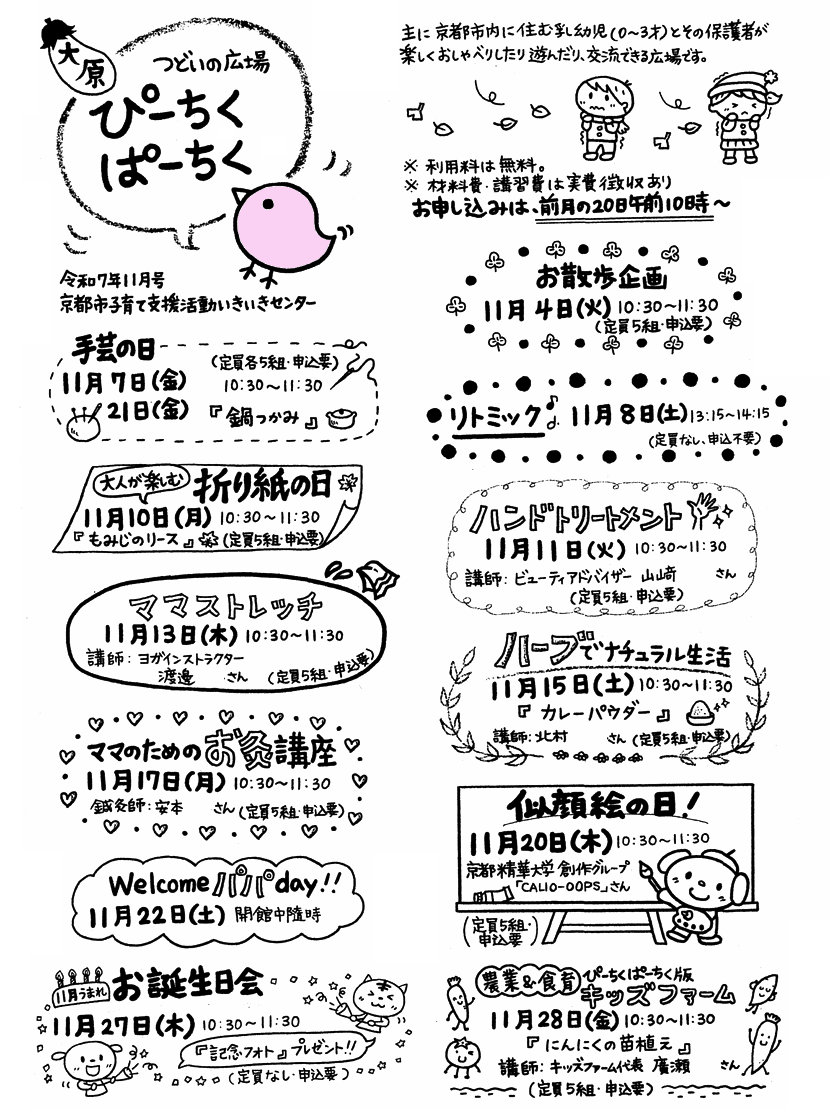 大原
つどいの広場
ぴーちく
ぱーちく
令和7年11月号
京都市子育て支援活動いきいきセンター
主に京都市内に住む乳幼児(0〜3才)とその保護者が
楽しくおしゃべりしたり遊んだり、交流できる広場です。
※ 利用料は無料。
※ 材料費・講習費は実費徴収あり
お申し込みは、前月の20日午前10時〜
お散歩企画
11月4日(火) 10:30〜11:30
(定員5組・申込要)
手芸の日
(定員各5組・申込要)
11月7日(金) 10:30〜11:30
21日(金) 『鍋つかみ』
リトミック 11月8日(土) 13:15〜14:15
(定員なし、申込不要)
大人が楽しむ 折り紙の日
11月10日(月) 10:30〜11:30
『もみじのリース』 (定員5組・申込要)
ハンドトリートメント
11月11日(火) 10:30〜11:30
講師:ビューティアドバイザー 山﨑 さん
(定員5組・申込要)
ママストレッチ
11月13日(木) 10:30〜11:30
講師:ヨガインストラクター
渡邉 さん (定員5組・申込要)
ハーブでナチュラル生活
11月15日(土) 10:30〜11:30
『カレーパウダー』
講師:北村 さん (定員5組・申込要)
ママのためのお灸講座
11月17日(月) 10:30〜11:30
鍼灸師:安本 さん (定員5組・申込要)
似顔絵の日!
11月20日(木) 10:30〜11:30
京都精華大学 創作グループ
「CALIO-OOPS」さん
(定員5組・
申込要)
Welcomeパパday!!
11月22日(土) 開館中随時
11月うまれ お誕生日会
11月27日(木) 10:30〜11:30
『記念フォト』プレゼント!!
(定員なし・申込要)
農業&食育 ぴーちくぱーちく版
キッズファーム
11月28日(金) 10:30〜11:30
『にんにくの苗植え』
講師:キッズファーム代表 廣瀬 さん
(定員5組・申込要)